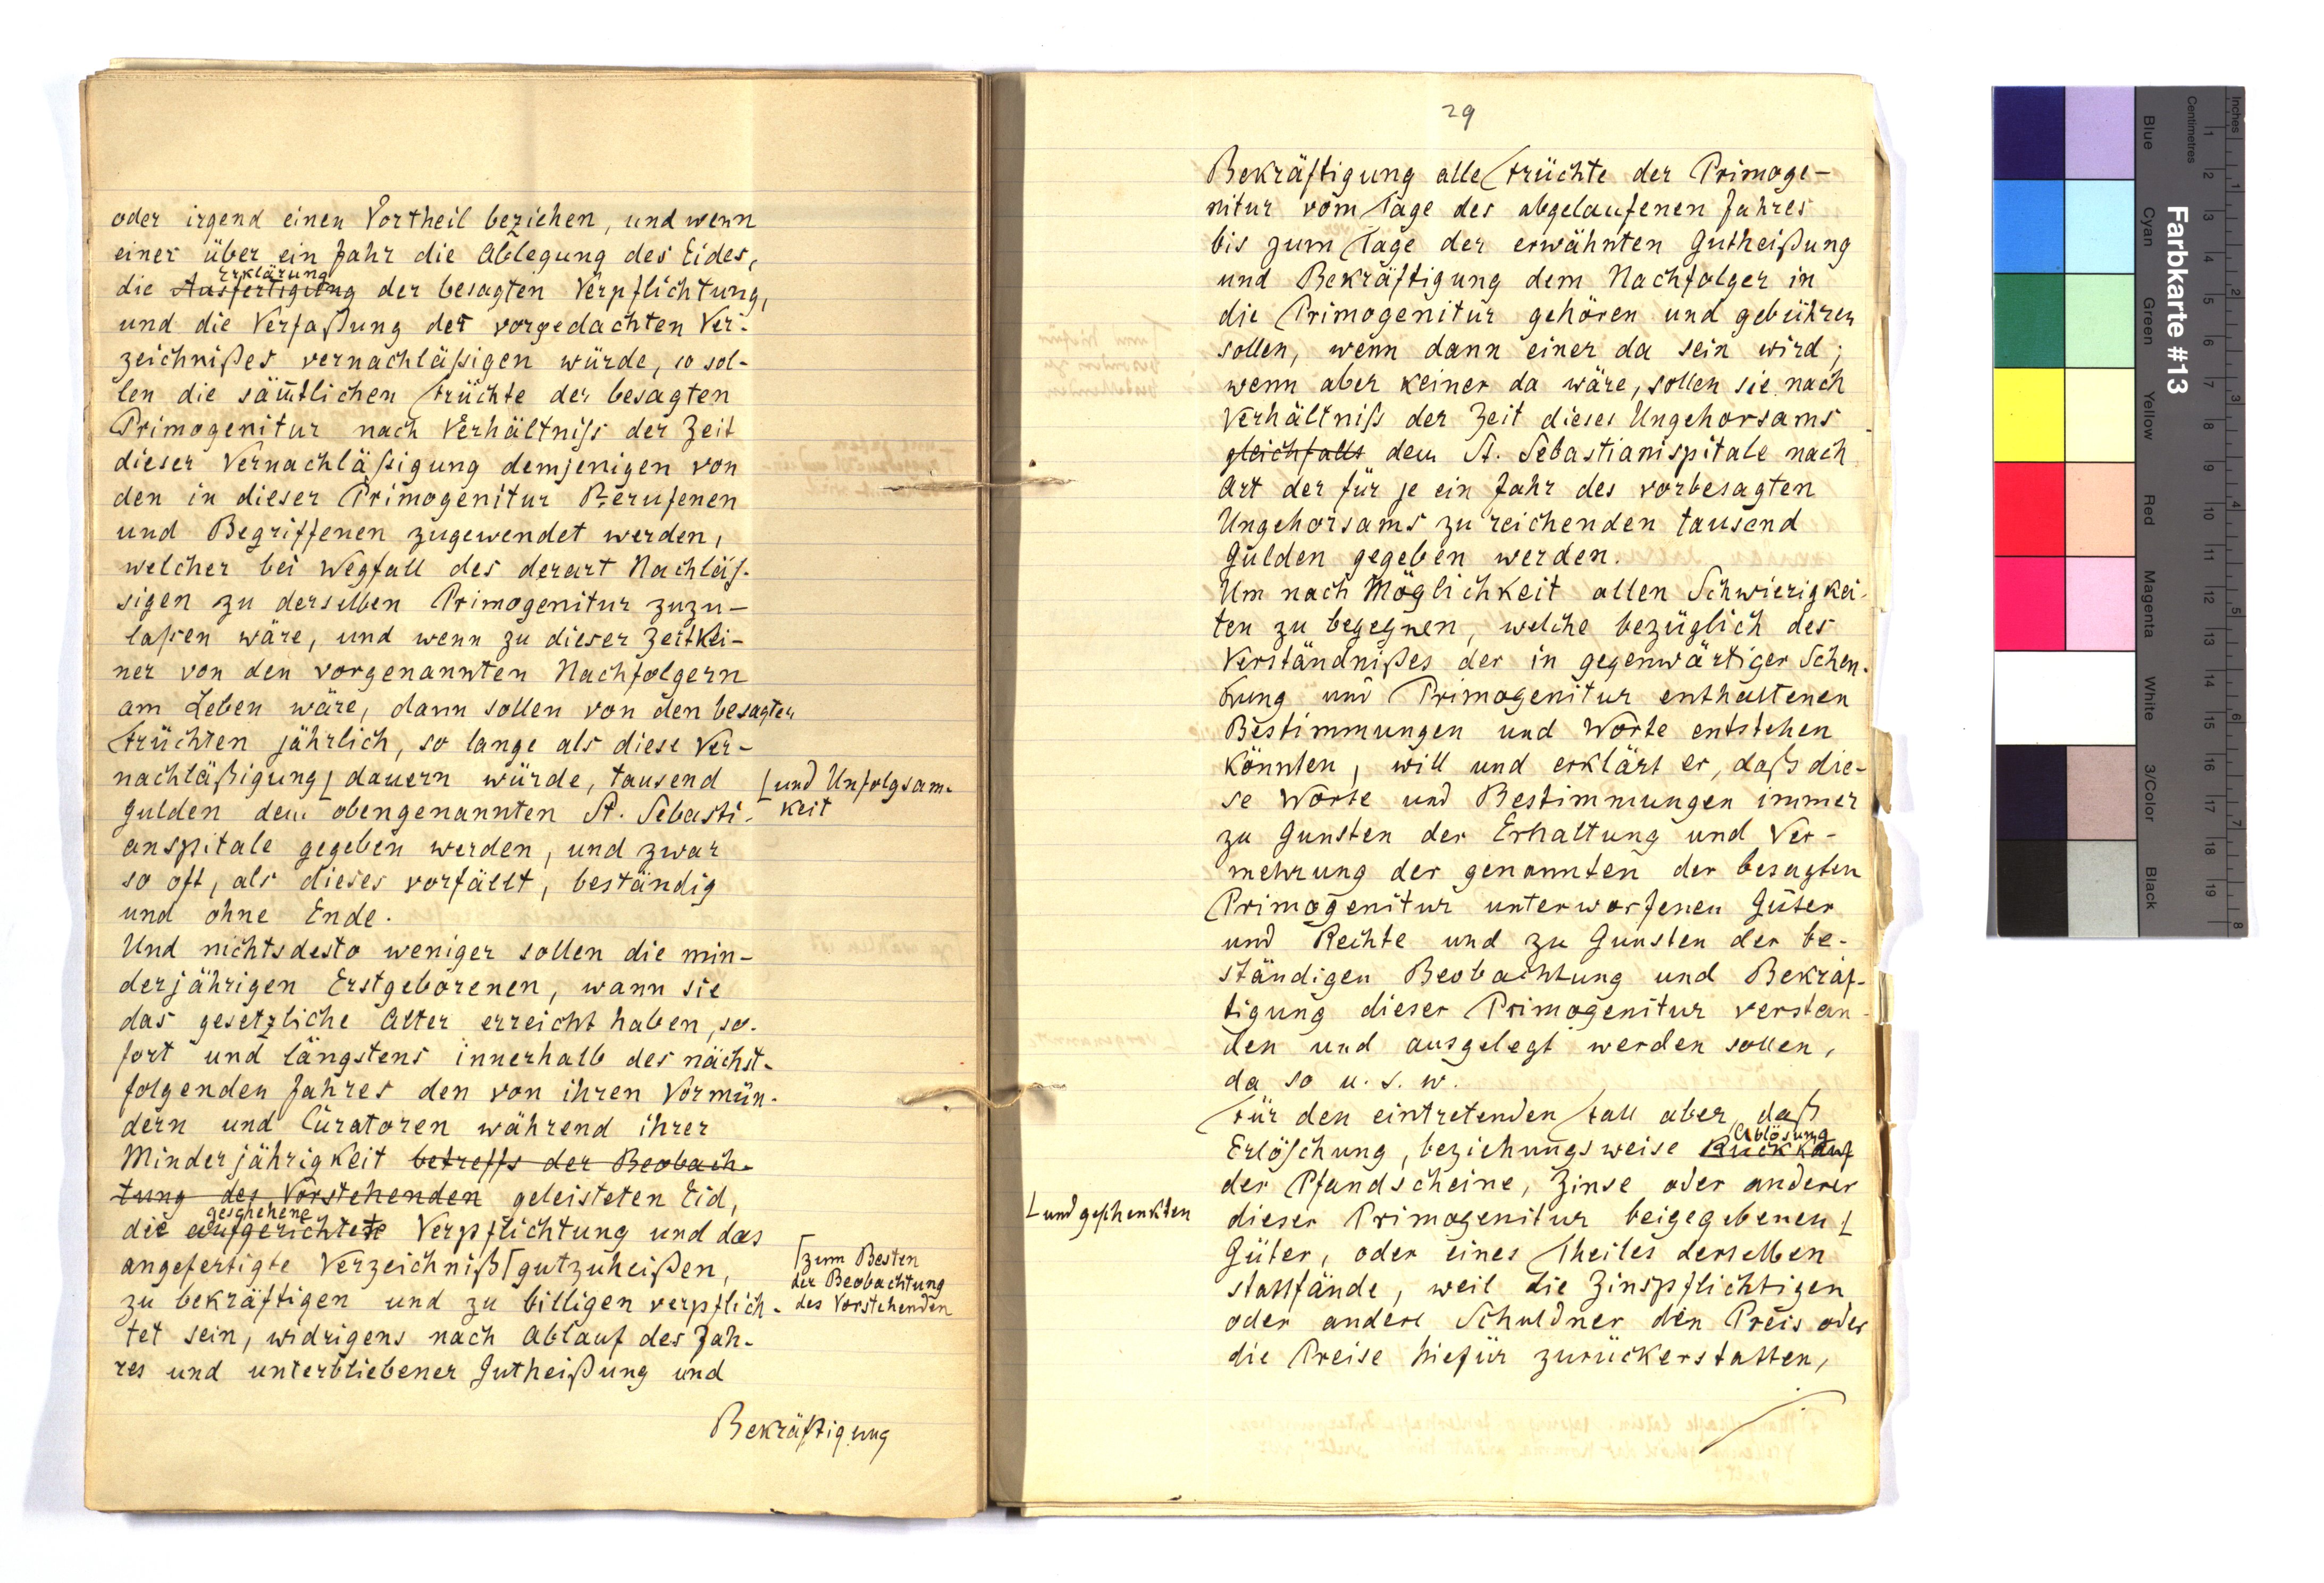 oder irgend einen Vortheil beziehen, und wenn
einer über ein Jahr die Ablegung des Eides,
Erklärung
die Ausfertigung der besagten Verpflichtung,
und die Verfaßung des vorgedachten Ver-
zeichnißes vernachläßigen würde, so sol-
len die säm̃tlichen Früchte der besagten
Primogenitur nach Verhältniss der Zeit
dieser Vernachläßigung demjenigen von
den in dieser Primogenitur Berufenen
und Begriffenen zugewendet werden,
welcher bei Wegfall des derart Nachläs-
sigen zu derselben Primogenitur zuzu-
laßen wäre, und wenn zu dieser Zeit kei-
ner von den vorgenannten Nachfolgern
am Leben wäre, dann sollen von den besagten
Früchten jährlich, so lange als diese Ver-
nachläßigung⌊ dauern würde, tausend
⌊und Unfolgsam-
keit
Gulden dem obengenannten St. Sebasti-
anspitale gegeben werden, und zwar
so oft, als dieses vorfällt, beständig
und ohne Ende.
Und nichtsdesto weniger sollen die min-
derjährigen Erstgeborenen, wann sie
das gesetzliche Alter erreicht haben, so-
fort und längstens innerhalb des nächst-
folgenden Jahres den von ihren Vormün-
dern und Curatoren während ihrer
Minderjährigkeit betreffs der Beobach-
tung des Vorstehenden geleisteten Eid,
geschehene
die aufgerichtete Verpflichtung und das
angefertigte Verzeichniß⌈ gutzuheißen,
⌈zum Besten
der Beobachtung
des Vorstehenden
zu bekräftigen und zu billigen verpflich-
tet sein, widrigens nach Ablauf des Jah-
res und unterbliebener Gutheißung und
Bekräftigung
29
Bekräftigung alle Früchte der Primoge-
nitur vom Tage des abgelaufenen Jahres
bis zum Tage der erwähnten Gutheißung
und Bekräftigung dem Nachfolger in
die Primogenitur gehören und gebühren
sollen, wenn dann einer da sein wird;
wenn aber keiner da wäre, sollen sie nach
Verhältniss der Zeit dieses Ungehorsams
gleichfalls dem St. Sebastianispitale nach
Art der für je ein Jahr des vorbesagten
Ungehorsams zu reichenden tausend
Gulden gegeben werden.
Um nach Möglichkeit allen Schwierigkei-
ten zu begegnen, welche bezüglich des
Verständnißes der in gegenwärtiger Schen-
kung und Primogenitur enthaltenen
Bestimmungen und Worte entstehen
könnten, will und erklärt er, daß die-
se Worte und Bestimmungen immer
zu Gunsten der Erhaltung und Ver-
mehrung der genannten der besagten
Primogenitur unterworfenen Güter
und Rechte und zu Gunsten der be-
ständigen Beobachtung und Bekräf-
tigung dieser Primogenitur verstan-
den und ausgelegt werden sollen,
da so u. s. w.
Für den eintretenden Fall aber, daß
Ablösung
Erlöschung, beziehungsweise Rückkauf
der Pfandscheine, Zinse oder anderer
⌊und geschenkten
dieser Primogenitur beigegebenen⌊
Güter, oder eines Theiles derselben
stattfände, weil die Zinspflichtigen
oder andere Schuldner den Preis oder
die Preise hiefür zurückerstatten,
Inches
Centimetres
1 2 3 4 5 6 7 8 9 10 11 12 13 14 15 16 17 18 19
1 2 3 4 5 6 7 8
Farbkarte #13
Blue
Cyan
Green
Yellow
Red
Magenta
White
3/Color
Black